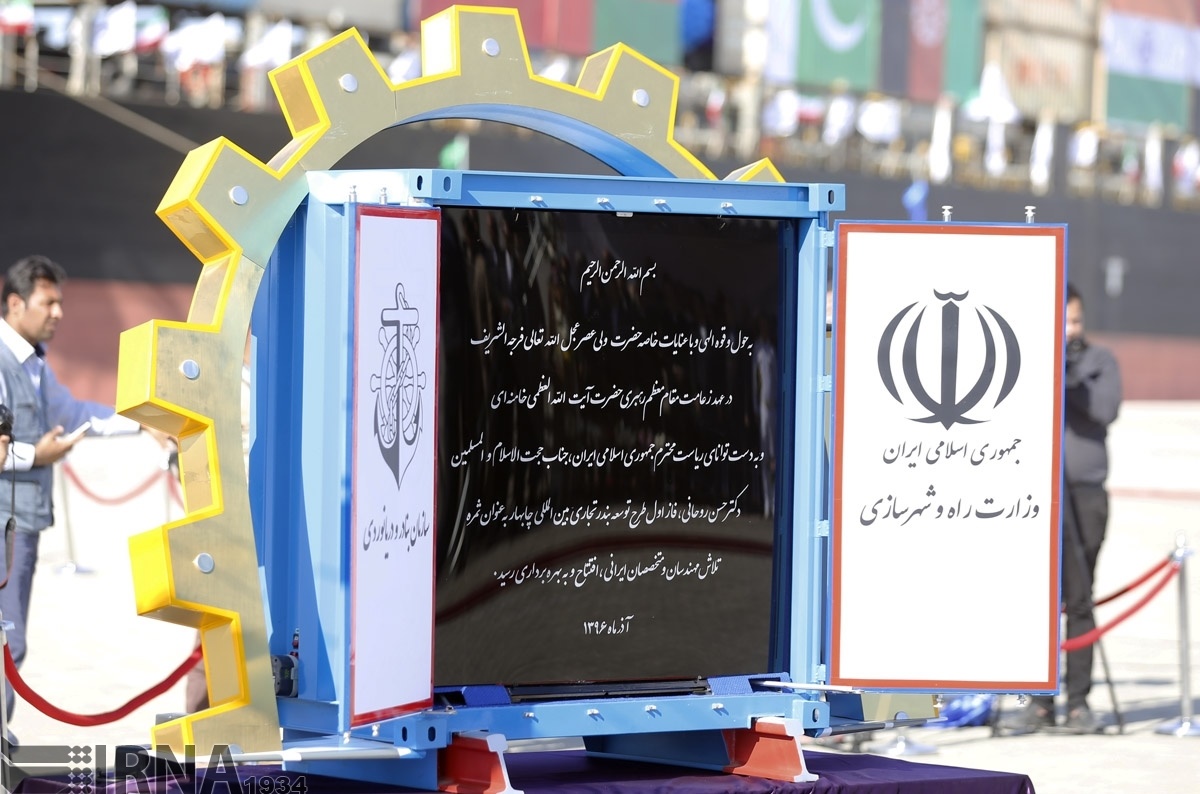 بسم الله الرحمن الرحیم
به حول و قوه الهی و با عنایات خاصه حضرت ولی عصر عجل الله تعالی فرجه الشریف
در عهد زعامت مقام معظم رهبری حضرت آیت الله العظمی خامنه ای
و به دست توانای ریاست محترم جمهوری اسلامی ایران، جناب حجت الاسلام و المسلمین
دکتر حسن روحانی، فاز اول طرح توسعه بندر تجاری بین المللی چابهار به عنوان ثمره
تلاش مهندسان و متخصصان ایرانی، افتتاح و به بهره برداری رسید.
آذر ماه ۱۳۹۶
جمهوری اسلامی ایران
وزارت راه و شهرسازی
سازمان بنادر و دریانوردی
IRNA 1934